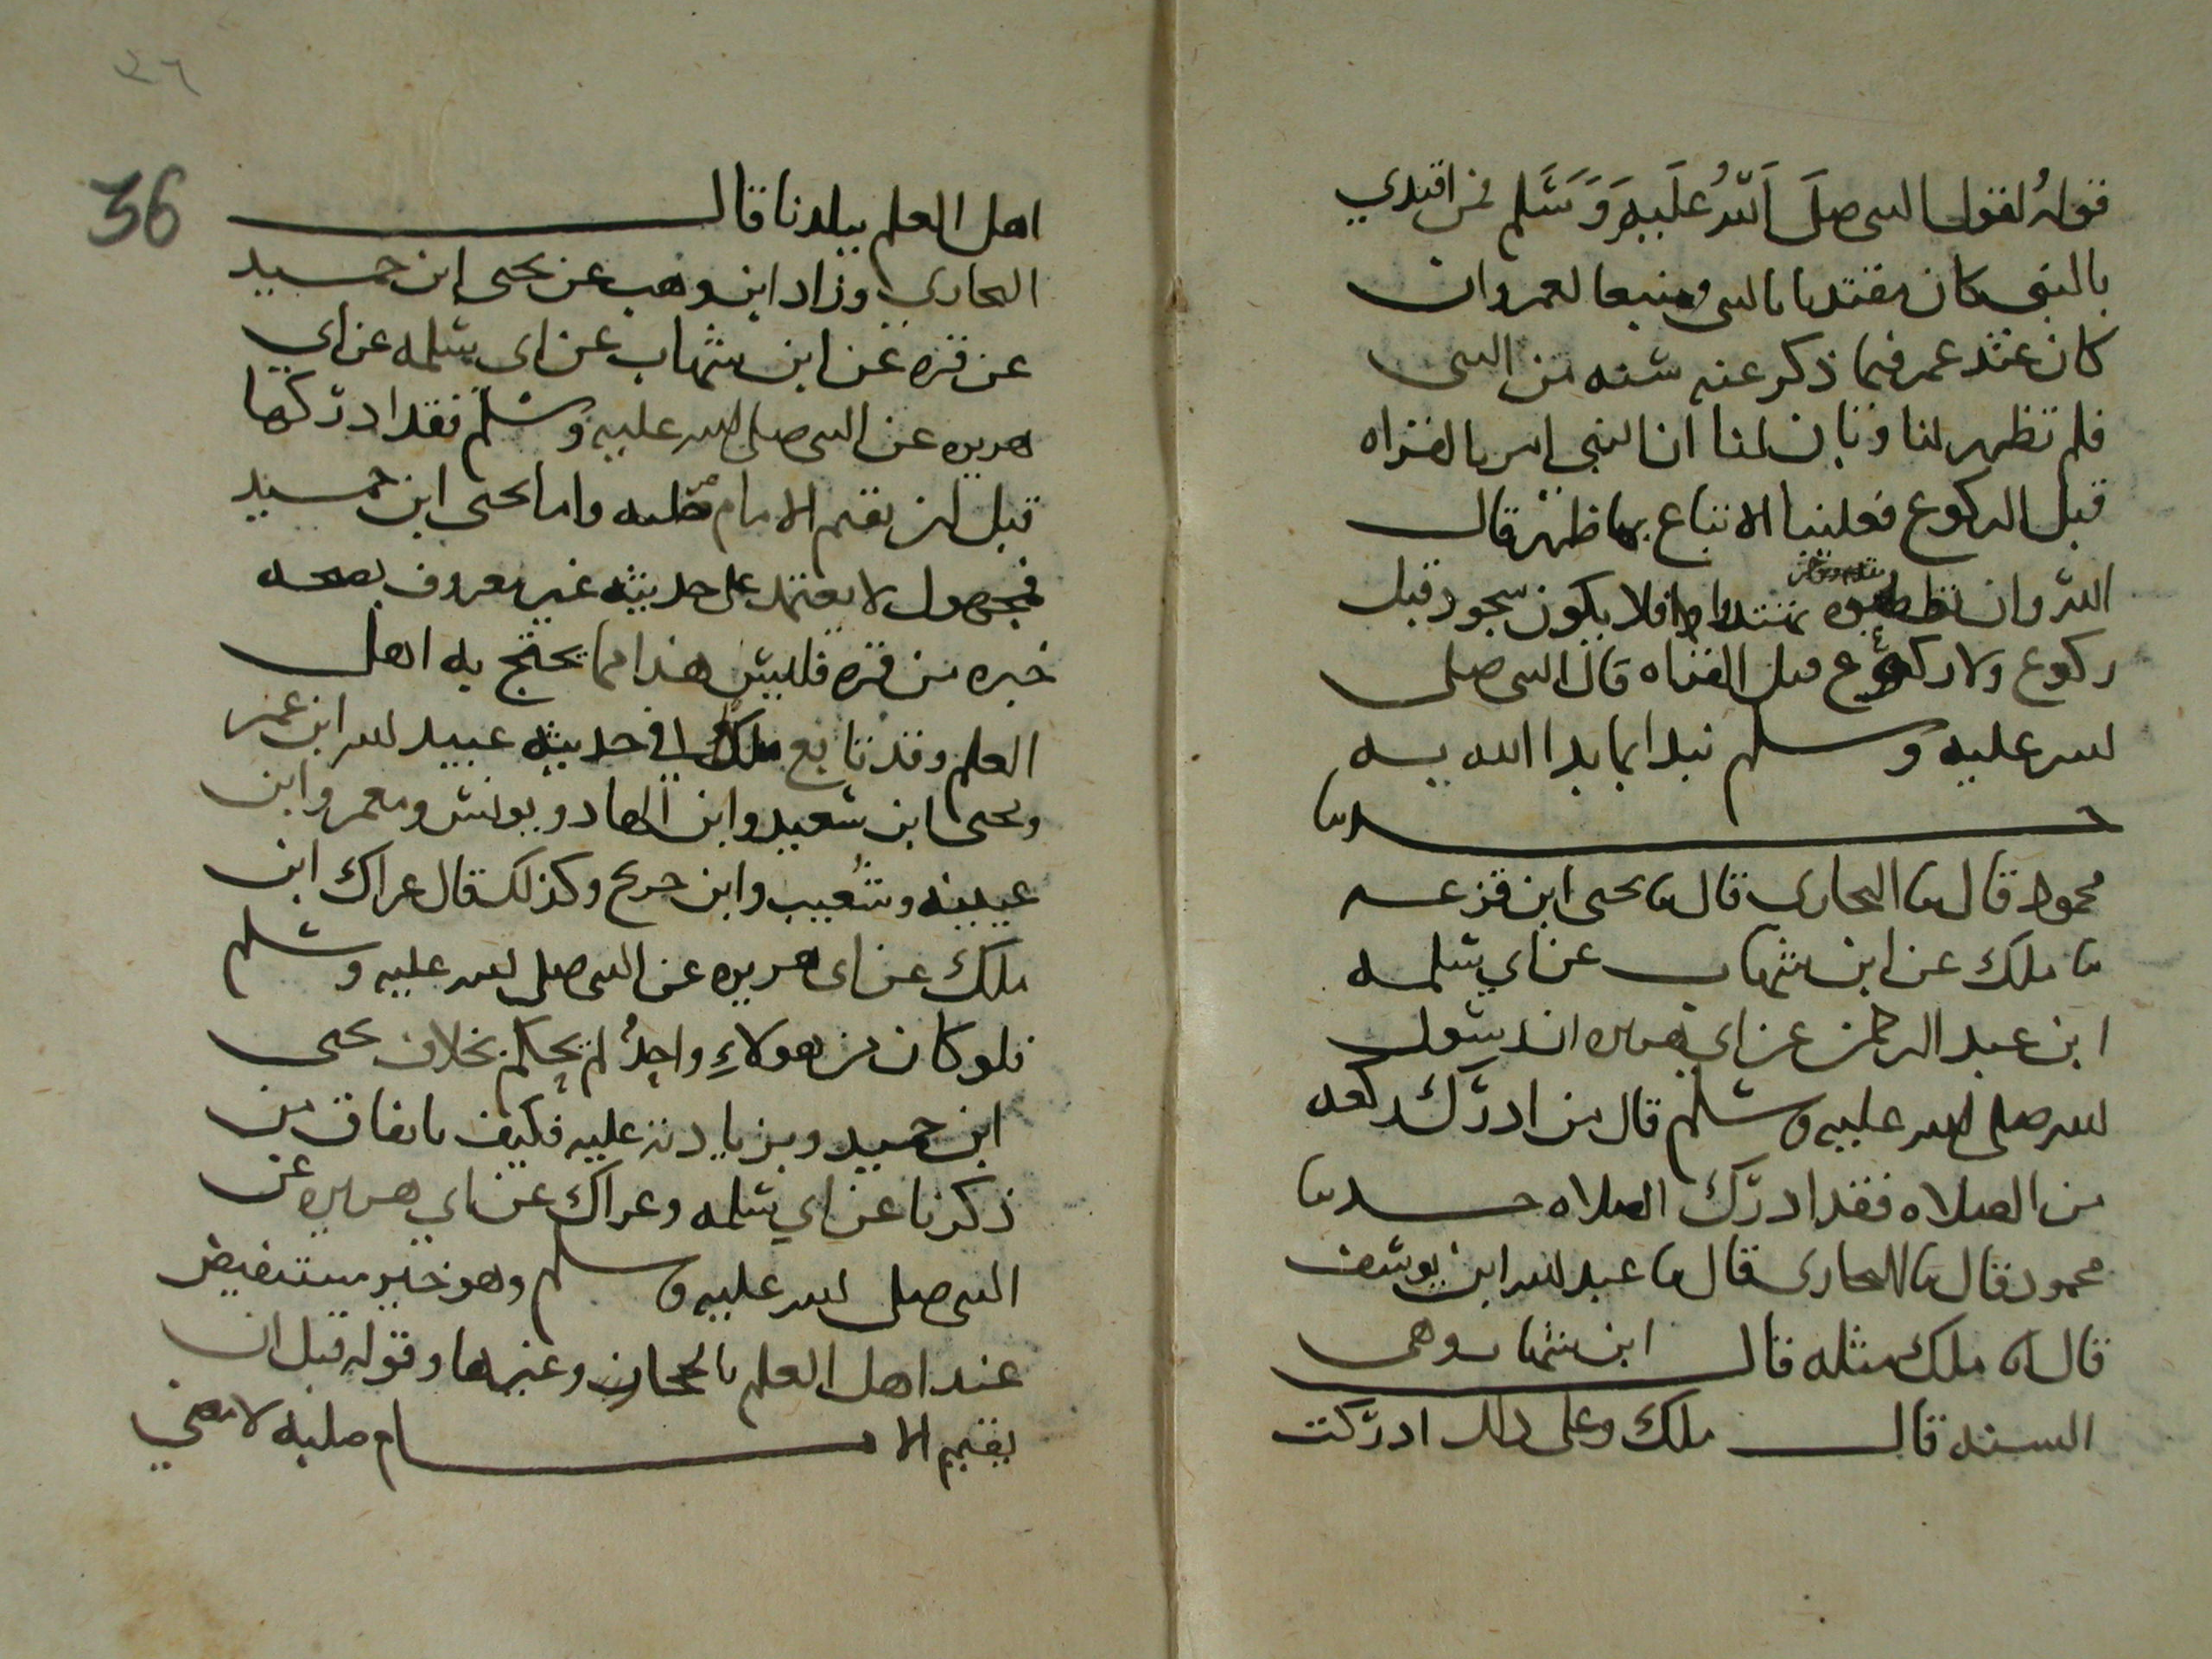 قوله لقول النبي صلى الله عليه وسلم فمن اقتدي
بالنبي كان مقتديا بالنبي ومتبعا لعمر وان
كان عند عمر فيما ذكر عنه سنه من النبي
فلم تظهر لنا وبان لنا ان النبي امر بالقراه
قبل الركوع فعلينا الاتباع بما ظهر قال
الله وان تطيعوه تهتدوا فلا يكون سجود قبل
ركوع ولا ركوع قبل القراه قال النبي صلى
الله عليه وسلم نبدا بما بدا الله به
حدثنا
محمود قال ثنا البخاري قال ثنا يحيى ابن قزعه
ثنا ملك عن ابن شهاب عن ابي سلمه
ابن عبد الرحمن عن ابي هريره ان رسول
الله صلى الله عليه وسلم قال من ادرك ركعه
من الصلاه فقد ادرك الصلاه حدثنا
محمود قال ثنا البخاري قال ثنا عبد الله ابن يوسف
قال انا ملك مثله قال ابن شهاب وهي
السنه قال ملك وعلى ذلك ادركت
٣٦
36
اهل العلم ببلدنا قال
البخاري وزاد ابن وهب عن يحيى ابن حميد
عن قره عن ابن شهاب عن ابي سلمه عن ابي
هريره عن النبي صلى الله عليه وسلم فقد ادركها
قبل ان يقيم الامام صلبه واما يحيى ابن حميد
فمجهول لا يعتمد على حديثه غير معروف بصحه
خبره من قره فليس هذا مما يحتج به اهل
العلم وقد تابع ملك في حديثه عبيد الله ابن عمر
ويحيى ابن سعيد وابن الهاد ويونس ومعمر وابن
عيينه وشعيب وابن جريج وكذلك قال عراك ابن
ملك عن ابي هريره عن النبي صلى الله عليه وسلم
فلو كان من هولاء واحد لم يحكم بخلاف يحيى
ابن حميد وبزيادته عليه فكيف باتفاق من
ذكرنا عن ابي سلمه وعراك عن ابي هريره عن
النبي صلى الله عليه وسلم وهو خبر مستفيض
عند اهل العلم بالحجاز وغيرها وقوله قبل ان
يقيم الامام صلبه لا معنى